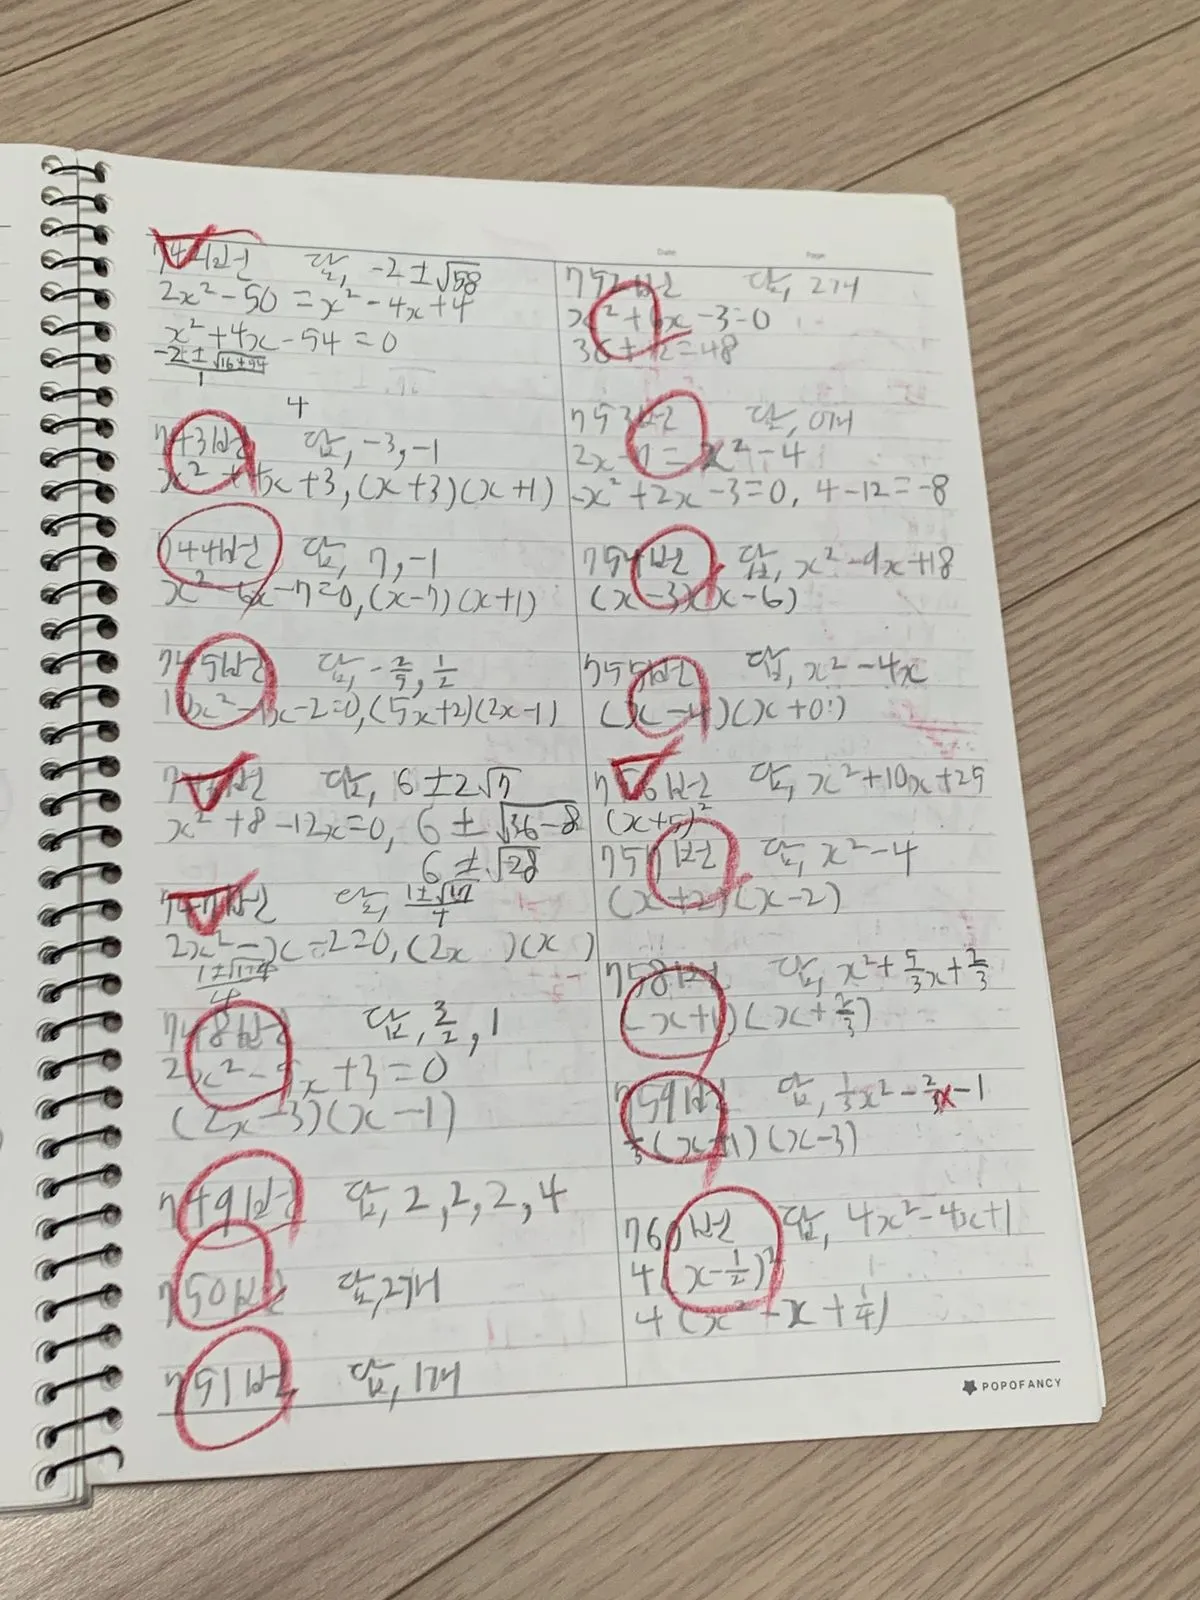 742번 답, -2±√58
2x²-50=x²-4x+4
x²+4x-54=0
-2±√16+54
1
4
743번 답, -3, -1
x²+4x+3, (x+3)(x+1)
744번 답, 7, -1
x²-6x-7=0, (x-7)(x+1)
745번 답, -2/5, 1/2
10x²-x-2=0, (5x+2)(2x-1)
답, 6±2√7
x²+8-12x=0, 6±√36-8
6±√28
747번 답, 1±√17/4
2x²-x-2=0, (2x )(x )
4
748번 답, 3/2, 1
2x²-5x+3=0
(2x-3)(x-1)
749번 답, 2, 2, 2, 4
750번 답, 2개
751번 답, 1개
Date Page
752번 답, 2개
x²+6x-3=0
36+12=48
753번 답, 0개
2x-7=x²-4
-x²+2x-3=0, 4-12=-8
754번 답, x²-9x+18
(x-3)(x-6)
755번 답, x²-4x
(x-4)(x+0)
756번 답, x²+10x+25
(x+5)²
757번 답, x²-4
(x+2)(x-2)
758번 답, x²+5/3x+2/3
(x+1)(x+2/3)
759번 답, 1/3x²-2/3x-1
1/3(x+1)(x-3)
760번 답, 4x²-4x+1
4(x-1/2)²
4(x²-x+1/4)
POPOFANCY